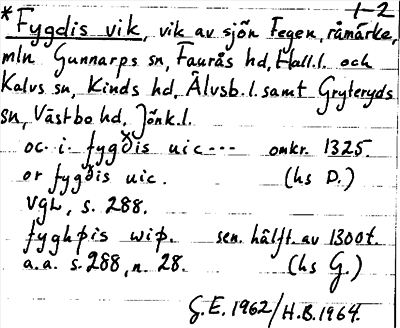 1-2
* Fygdis vik, vik av sjön Fegen, råmärke,
mln Gunnarps sn, Faurås hd, Hall.l. och
Kalvs sn, Kinds hd, Älvsb.l. samt Gryteryds
sn, Västbo hd, Jönk.l.
oc. i. fygðis uic--- omkr. 1325.
or fygðis uic. (hs D.)
VgL, s. 288.
fyghþis wiþ. sen. hälft. av 1300t.
a.a. s. 288, n. 28. (hs G.)
G.E. 1962/H.B. 1964.